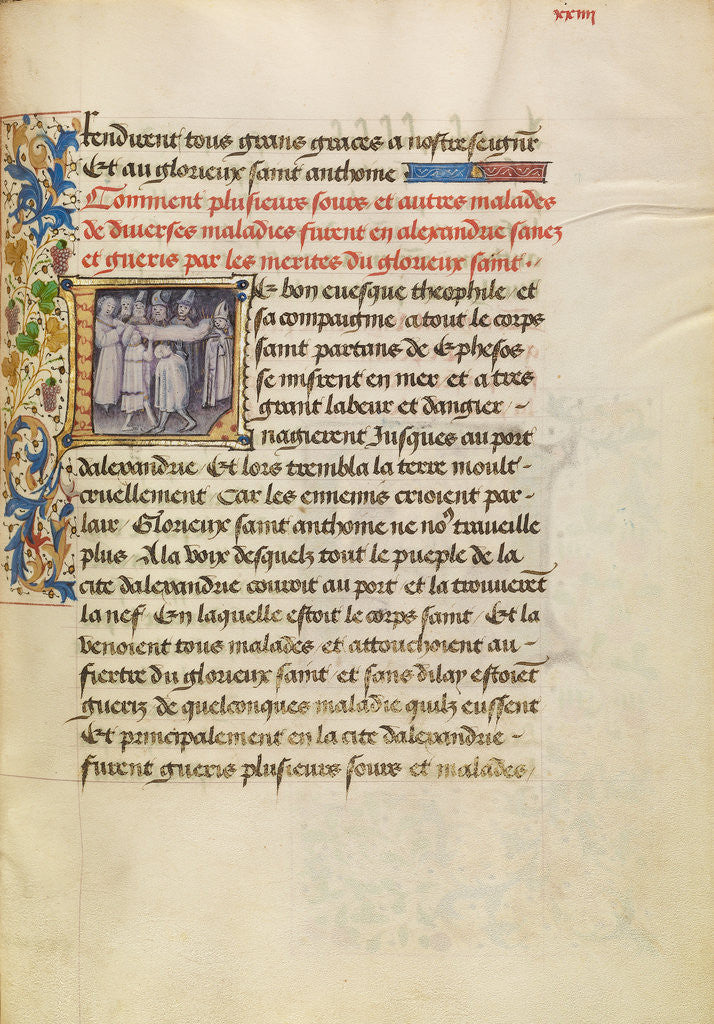 xxiiii
rendirent tous grans graces a nostre seignr̄
Et au glorieux saint anthoine
Comment plusieurs sours et autres malades
de diuerses maladies furent en alexandrie sanez
et gueris par les merites du glorieux saint.
Le bon euesque theophile et
sa compaignie a tout le corps
saint partans de Ephesos
se misrent en mer et a tres
grant labeur et dangier
nagierent Jusques au port
dalexandrie / Et lors trembla la terre moult
cruellement Car les ennemis crioient par
lair Glorieux saint anthoine ne no9 traueille
plus / A la voix desquelz tout le pueple de la
cite dalexandrie couroit au port et la trouuerēt
la nef En laquelle estoit le corps saint / Et la
venoient tous malades et attouchoient au
fiertre du glorieux saint et sans dilay estoiēt
gueriz de quelconques maladie quilz eussent
Et principalement en la cite dalexandrie
furent gueris plusieurs sours et malades /